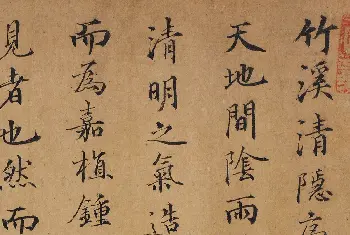 竹溪清隱高
天地間陰雨
清明之氣造
而為嘉植鍾
見者也然而